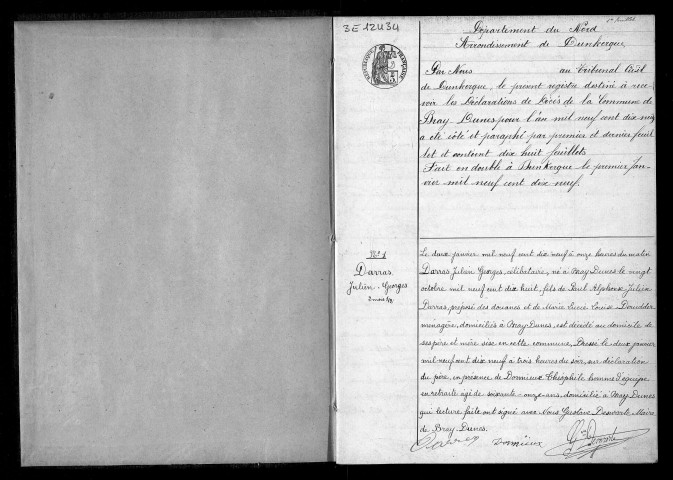 1er feuillet
3E 12434
Département du Nord
Arrondissement de Dunkerque
RÉPUBLIQUE FRANÇAISE
Par Nous au Tribunal Civil
de Dunkerque, le présent registre destiné à rece-
voir les Déclarations de Décès de la Commune de
Bray-Dunes pour l'an mil neuf cent dix neuf
a été côté et paraphé par premier et dernier feuil
let et contient dix huit feuillets.
Fait en double à Dunkerque le premier Jan-
vier mil neuf cent dix neuf.
No 1
Darras
Julien-Georges
2 mois 1/2
Le deux janvier mil neuf cent dix neuf à onze heures du matin
Darras Julien Georges, célibataire, né à Bray-Dunes le vingt
octobre mil neuf cent dix huit, fils de Paul Alphonse Julien
Darras, préposé des douanes et de Marie Lucie Louise
ménagère, domiciliés à Bray-Dunes, est décédé au domicile de
ses père et mère sise en cette commune. Dressé le deux janvier
mil neuf cent dix neuf à trois heures du soir, sur déclaration
du père, en présence de Dormieux Théophile homme d'équipe
en retraite âgé de soixante-onze-ans, domicilié à Bray-Dunes
qui lecture faite ont signé avec Nous Gustave Deswarte, Maire
de Bray-Dunes.
Darras Dormieux G. Deswarte